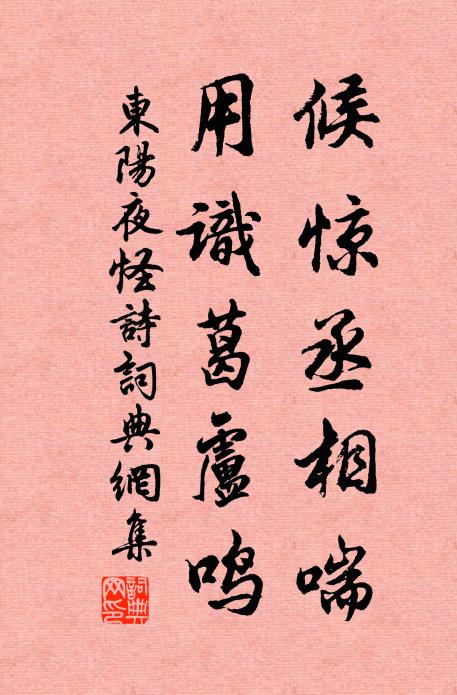 候惊丞相喘
用識葛盧鸣
東陽夜怪詩詞典網集
詞典网印